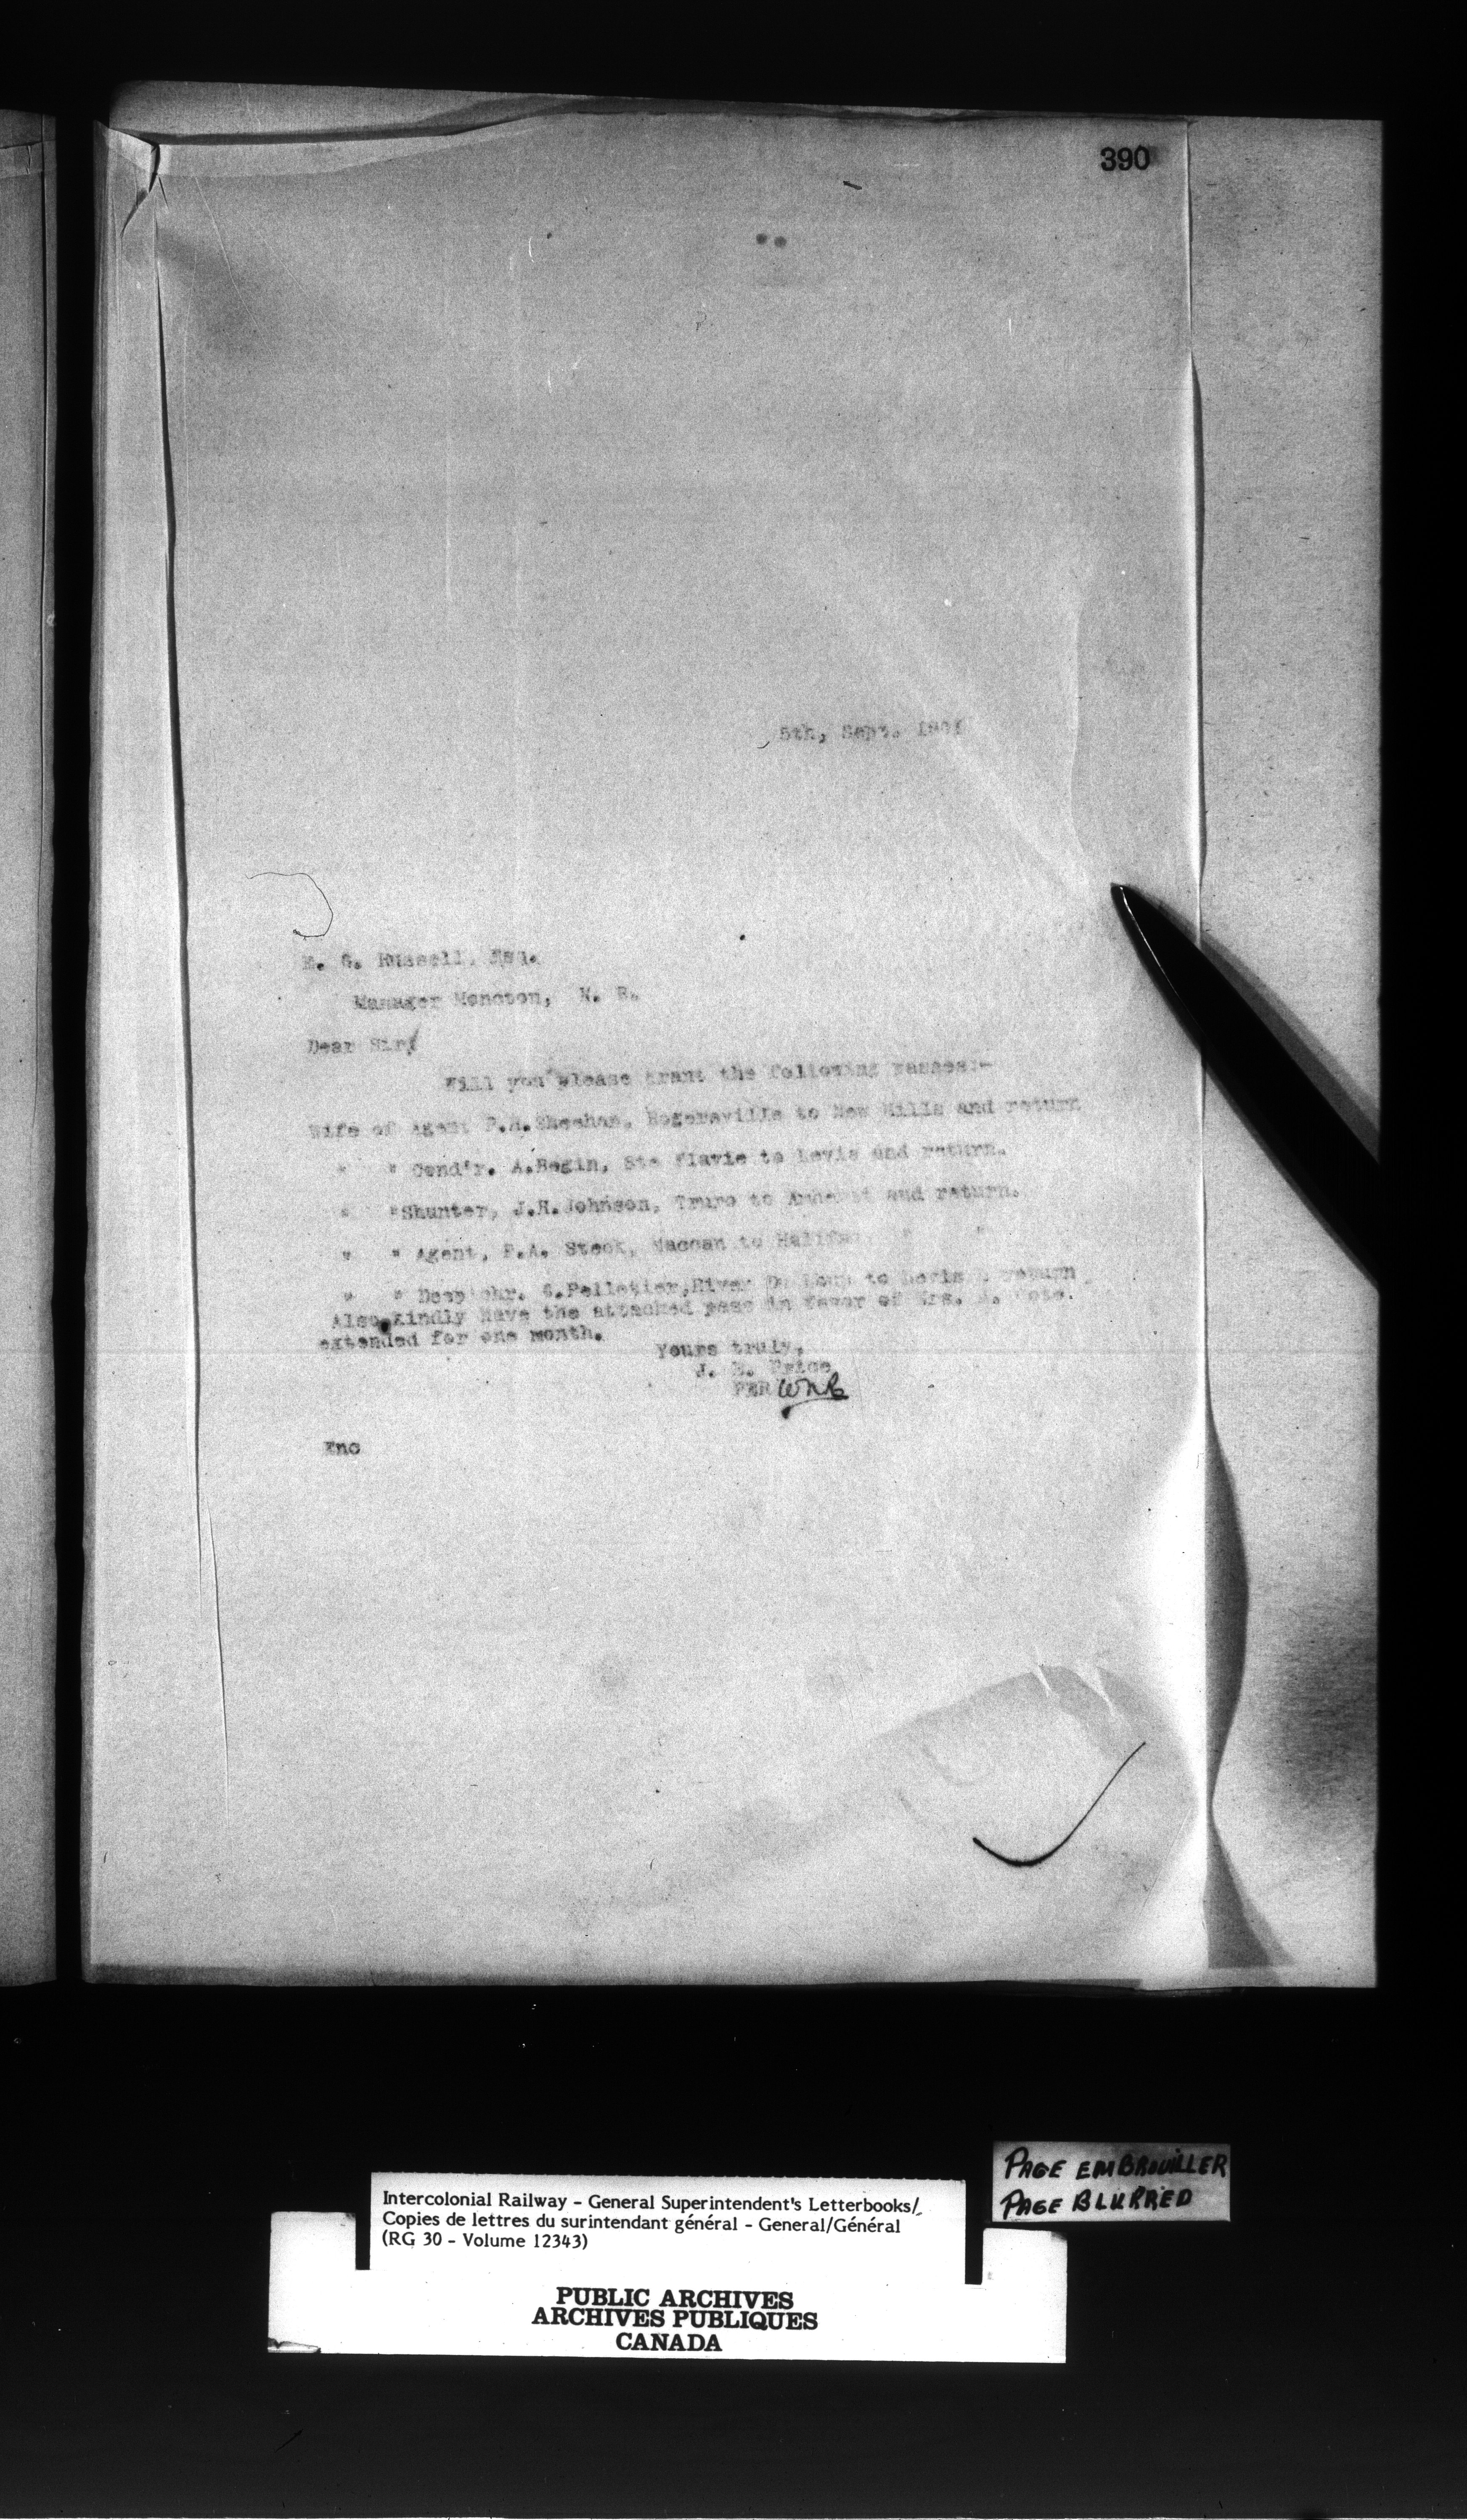 390
5th, Sept. 1901
E. G. Russell, Esq.
Manager Moncton, N. B.
Dear Sir/
Will you please grant the following passes:-
Wife of Agent P.H.Sheehan, Rogersville to New Mills and return
" " Cond'r. A.Begin, Ste Flavie to Levis and return.
" "Shunter, J.H.Johnson, Truro to Amherst and return.
" " Agent, F.A. Steok, Maccan to Halifax " "
" " Desp'chr. S.Pelletier,River Du Loup to Levis & return
Also kindly have the attached pass in favor of Mrs. Cote.
extended for one month.
Yours truly,
J. E. Price
PER WNR
Enc
PAGE EMBROUILLER
PAGE BLURRED
Intercolonial Railway - General Superintendent's Letterbooks/
Copies de lettres du surintendant général - General/Général
(RG 30 - Volume 12343)
PUBLIC ARCHIVES
ARCHIVES PUBLIQUES
CANADA